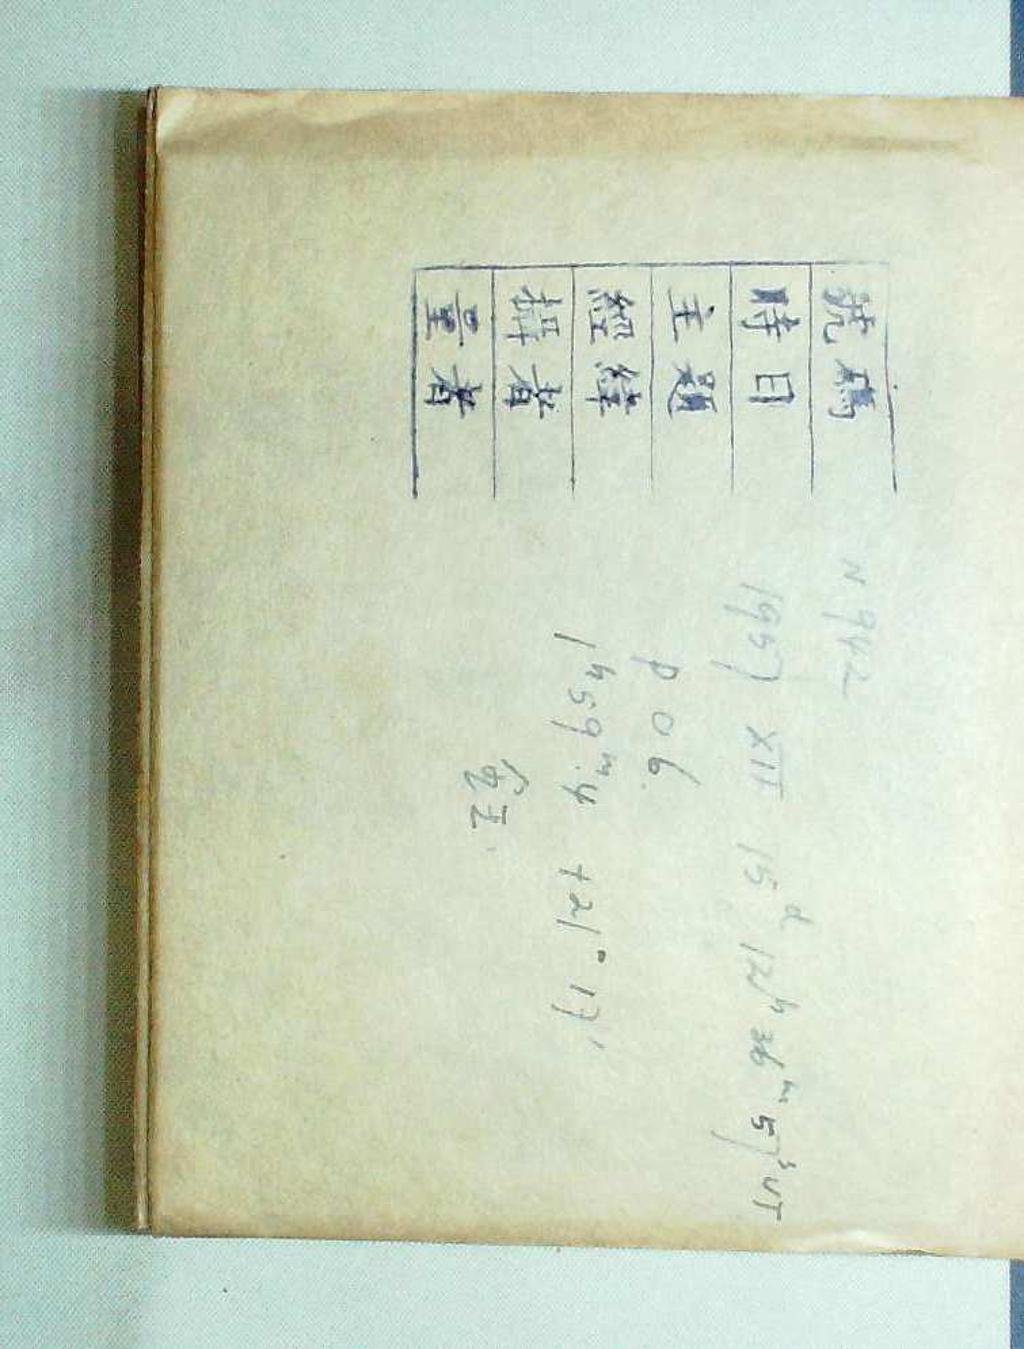 號碼 N 942
時日 1957 XII 15ᵈ 12ʰ 36ᵐ 57ˢ UT
主題 P 06
經緯 1ʰ59ᵐ.4 +21° 17′
攝者
量者